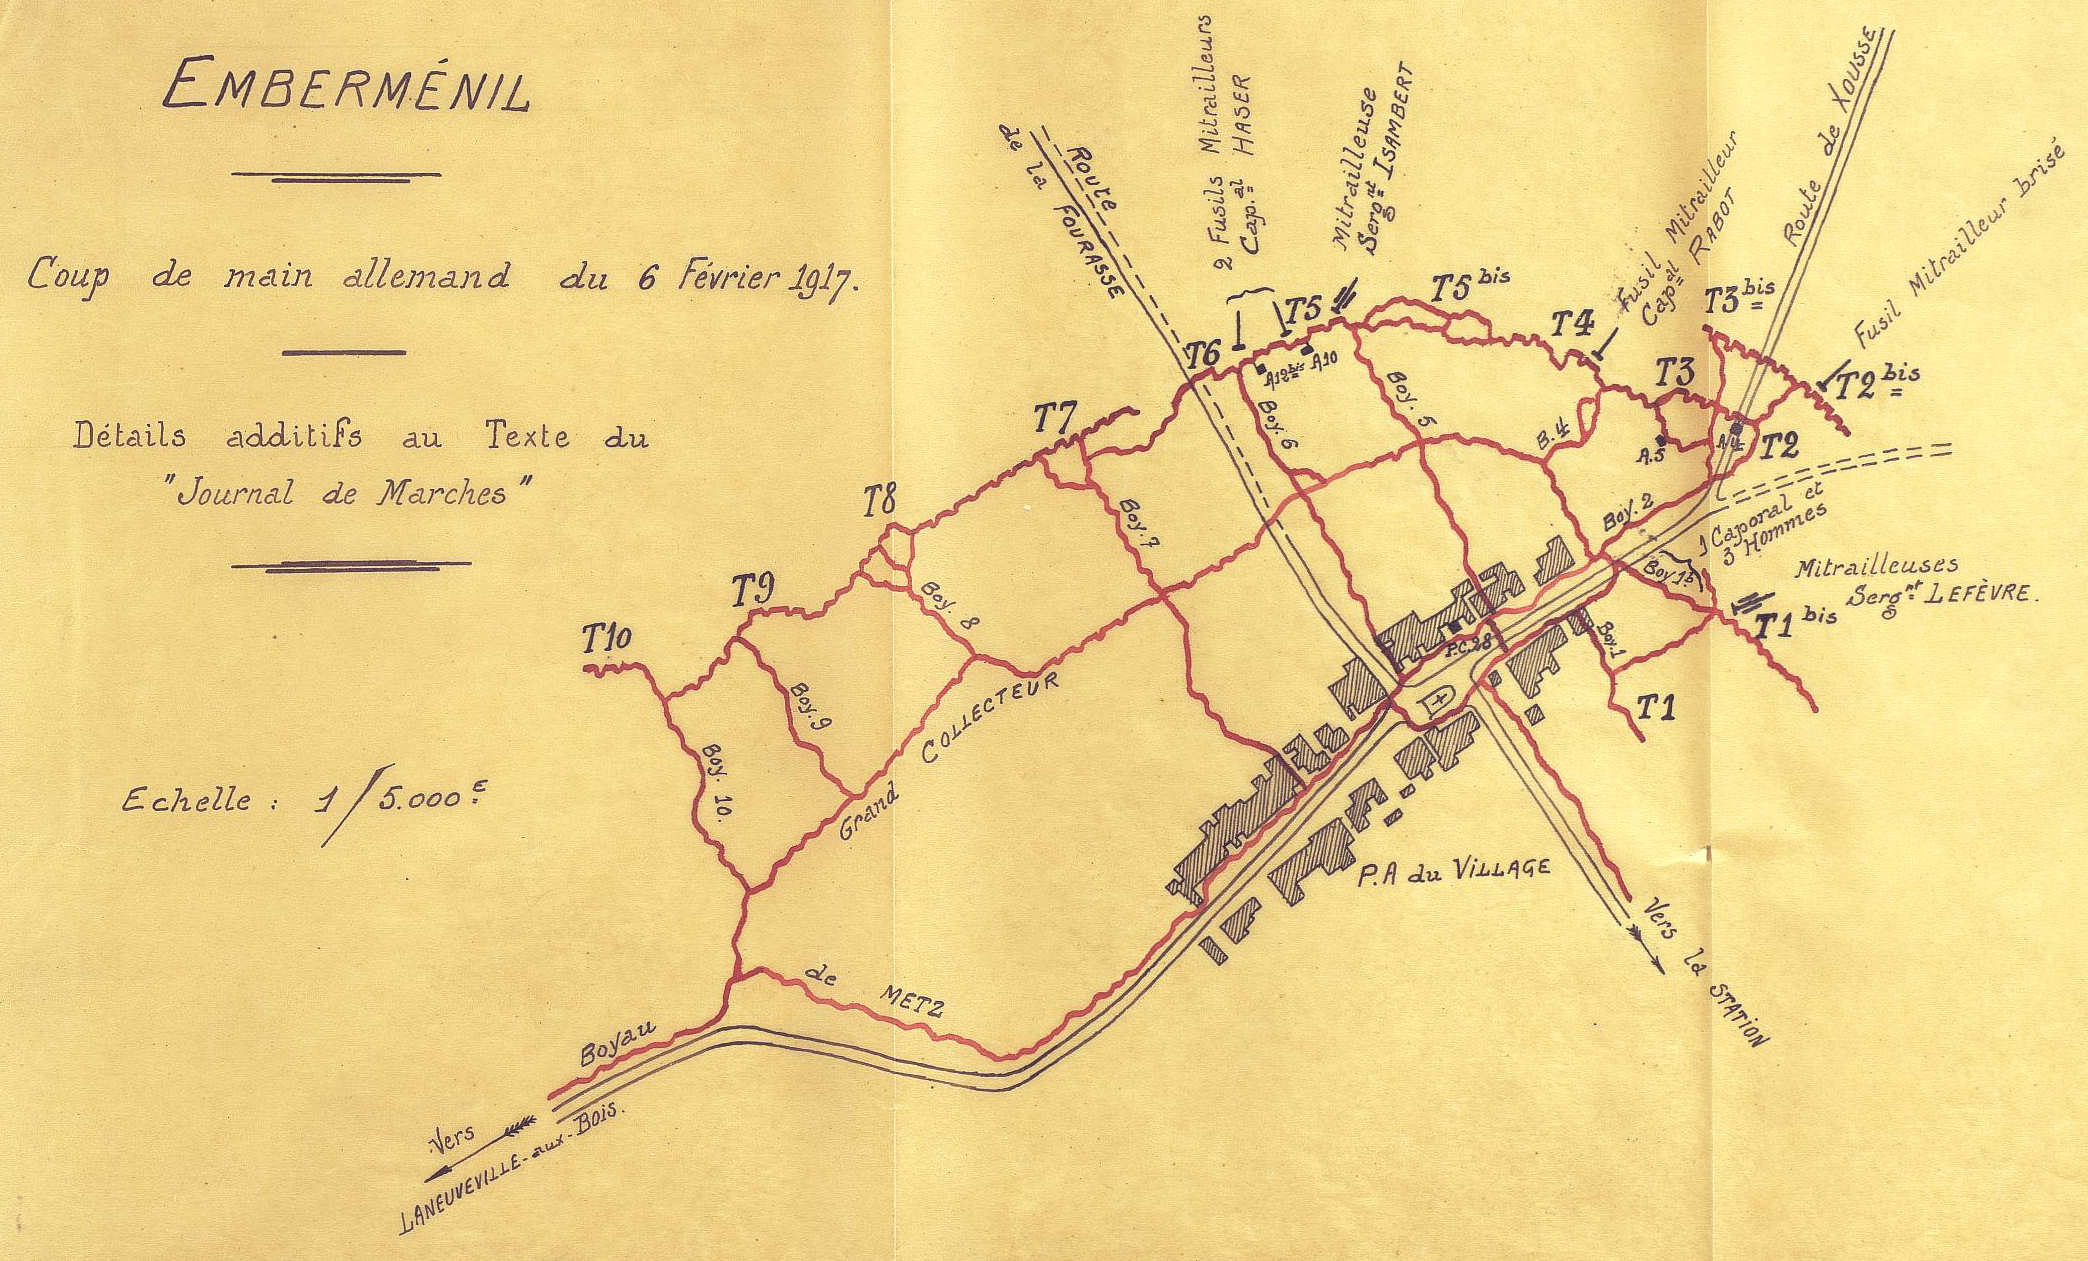 EMBERMÉNIL
Coup de main allemand du 6 Février 1917.
Détails additifs au Texte du
"Journal de Marches"
Echelle : 1/5.000E
Route
de la FOURASSE
2 Fusils Mitrailleurs
Cap.al HASER
Mitrailleuse
Sergnt ISAMBERT
Fusil Mitrailleur
Capal RABOT
Route de XOUSSE
Fusil Mitrailleur brisé
T3 bis
T2 bis
T5 bis
T5
T4
T3
T6
A12bis
A10
Boy. 5
Boy. 6
B.4
A.5
A.4
T2
T7
Boy. 7
Boy. 2
1 Caporal et
3 Hommes
Boy 1b
Mitrailleuses
Sergnt LEFÈVRE.
T1 bis
T8
Boy. 8
T9
T10
Boy. 9
Boy. 10.
Grand COLLECTEUR
P.C.28
Boy. 1
T1
P.A du VILLAGE
Vers la STATION
Boyau de METZ
Vers
LANEUVEVILLE-aux-Bois.